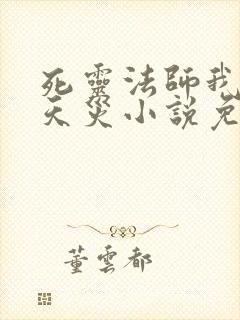 死靈法師我
天災小說免
董雲都